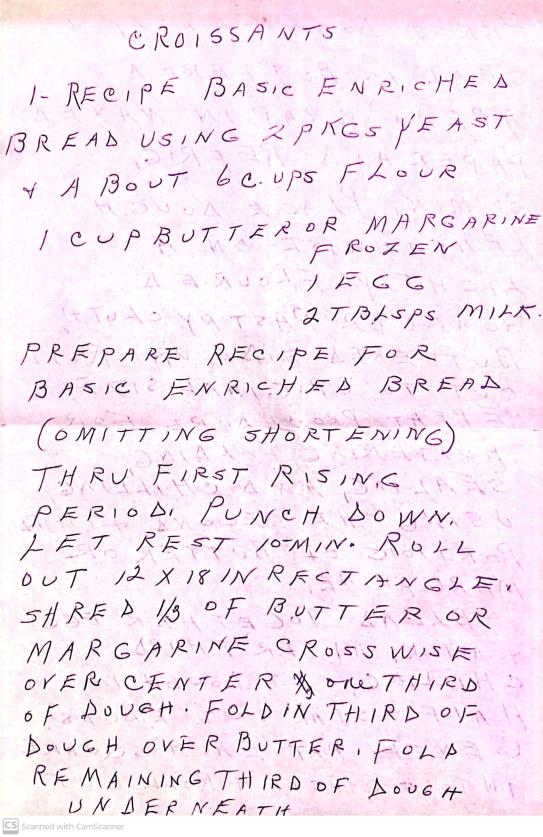 CROISSANTS
1- RECIPE BASIC ENRICHED
BREAD USING 2 PKGS YEAST
& ABOUT 6 C.UPS FLOUR
1 CUP BUTTER OR MARGARINE
FROZEN
1 EGG
2 TBLSPS MILK.
PREPARE RECIPE FOR
BASIC ENRICHED BREAD
(OMITTING SHORTENING)
THRU FIRST RISING
PERIOD. PUNCH DOWN.
LET REST 10-MIN. ROLL
OUT 12 X 18 IN RECTANGLE.
SHRED 1/3 OF BUTTER OR
MARGARINE CROSSWISE
OVER CENTER one THIRD
OF DOUGH. FOLD IN THIRD OF
DOUGH OVER BUTTER. FOLD
REMAINING THIRD OF DOUGH
UNDERNEATH
CS Scanned with CamScanner